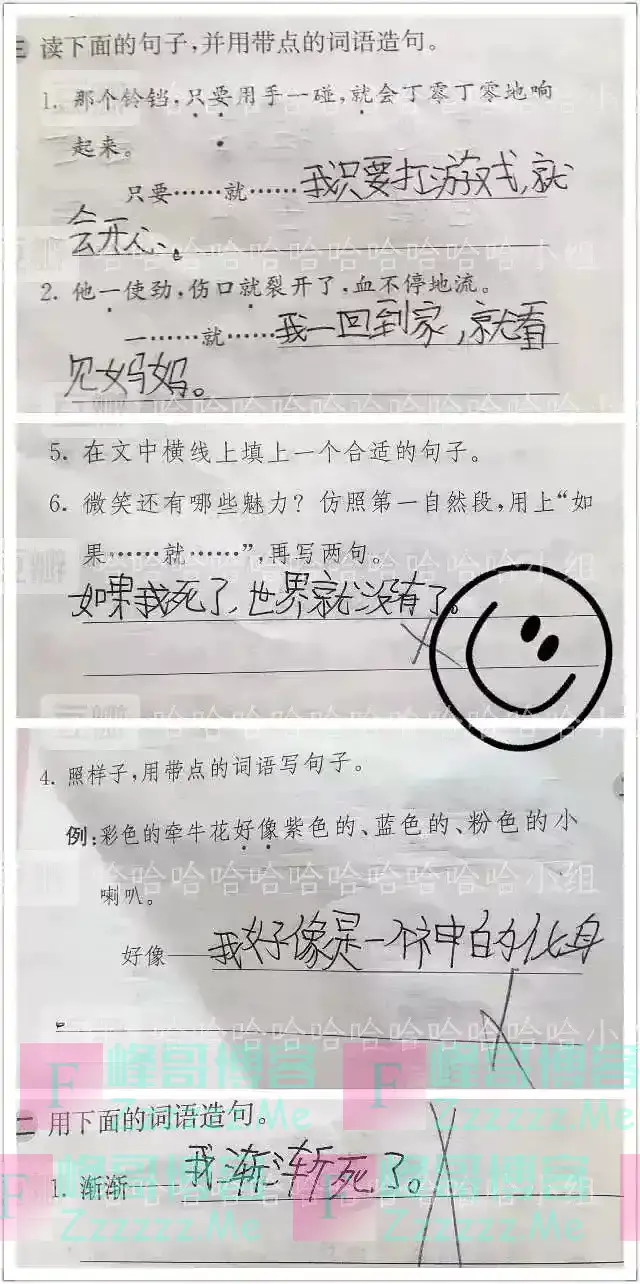 三 读下面的句子,并用带点的词语造句。
1. 那个铃铛,只要用手一碰,就会丁零丁零地响
起来。
只要……就……我只要打游戏,就
会开心。
哈哈哈哈哈哈哈哈哈哈小组
2. 他一使劲,伤口就裂开了,血不停地流。
一……就……我一回到家,就看
见妈妈。
5. 在文中横线上填上一个合适的句子。
6. 微笑还有哪些魅力?仿照第一自然段,用上“如
果……就……”,再写两句。
豆瓣 哈哈哈哈哈哈哈哈哈哈小组
如果我死了,世界就没有了。
4. 照样子,用带点的词语写句子。
例:彩色的牵牛花好像紫色的、蓝色的、粉色的小
喇叭。
哈哈哈哈哈哈哈哈哈哈小组
好像——我好像是一个神的化身
F 峰哥博客 F 峰哥博客
Zzzzzz.Me Zzzzzz.Me
二 用下面的词语造句。
1. 渐渐——我渐渐死了。
F 峰哥博客 F 峰哥博客
Zzzzzz.Me Zzzzzz.Me